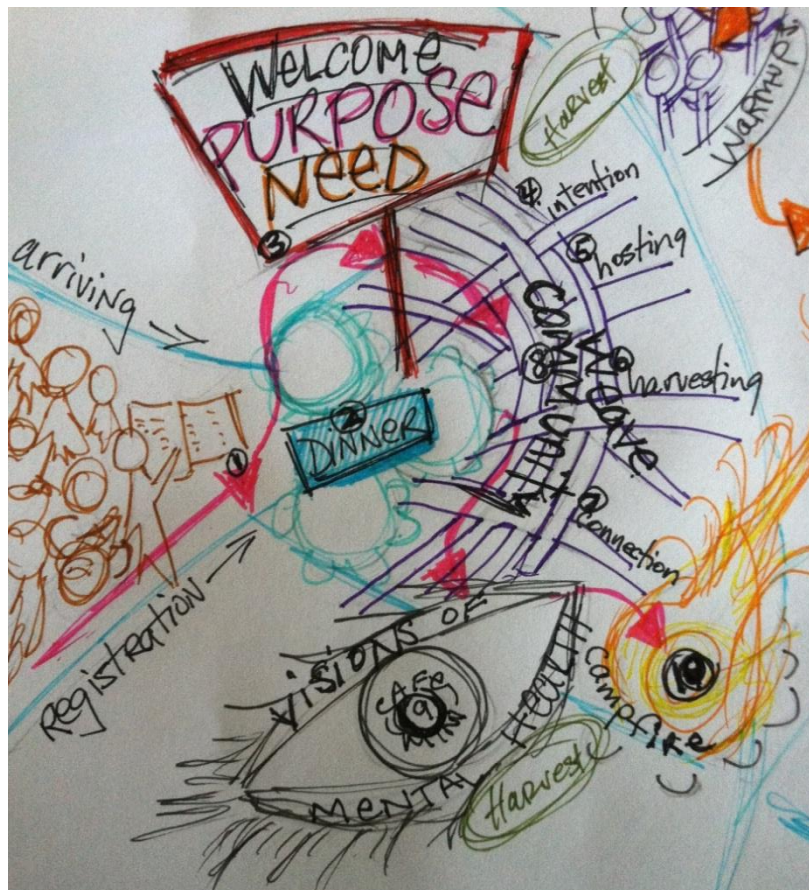 WELCOME
PURPOSE
NEED
③
Harvest
Warmups.
④ intention
⑤ hosting
⑥ harvesting
⑦ Connection
Weave
⑧ COMMUNITY
arriving
①
② DINNER
Registration
VISIONS OF
MENTAL HEALTH
CAFE
9
Harvest
10
Campfire